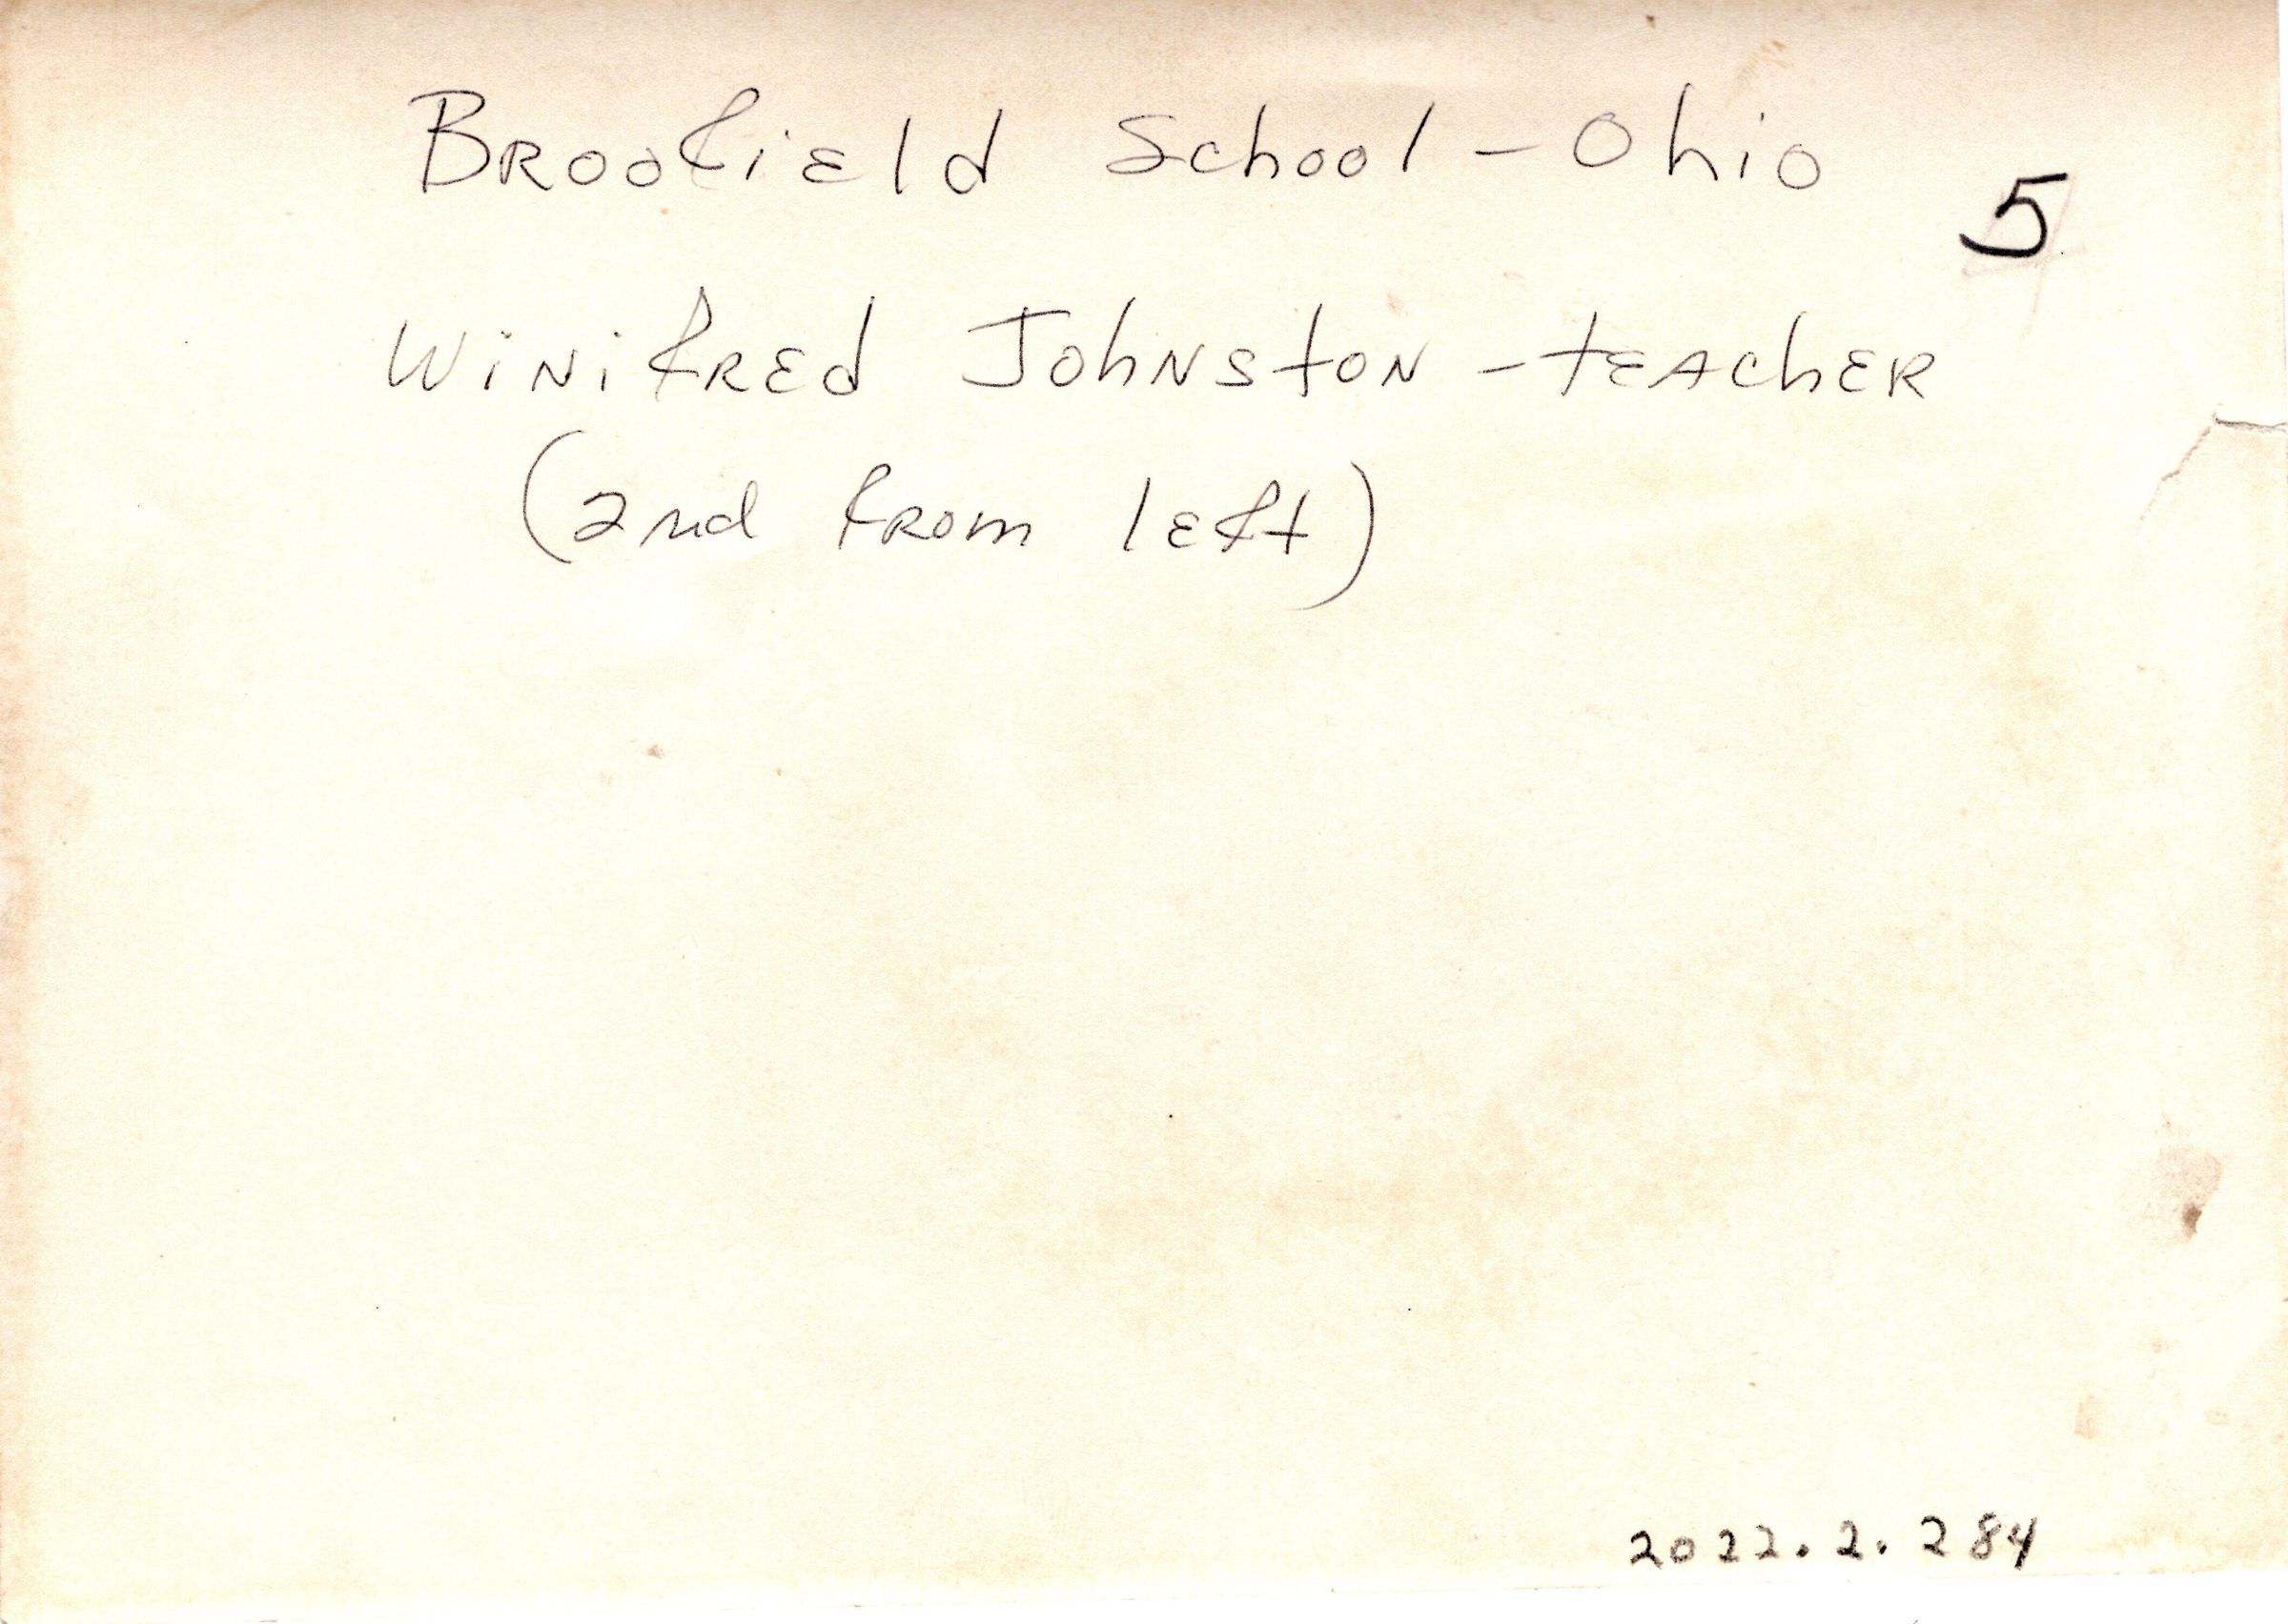 Broofield School - Ohio
5
Winifred Johnston - teacher
(2nd from left)
2022.2.284